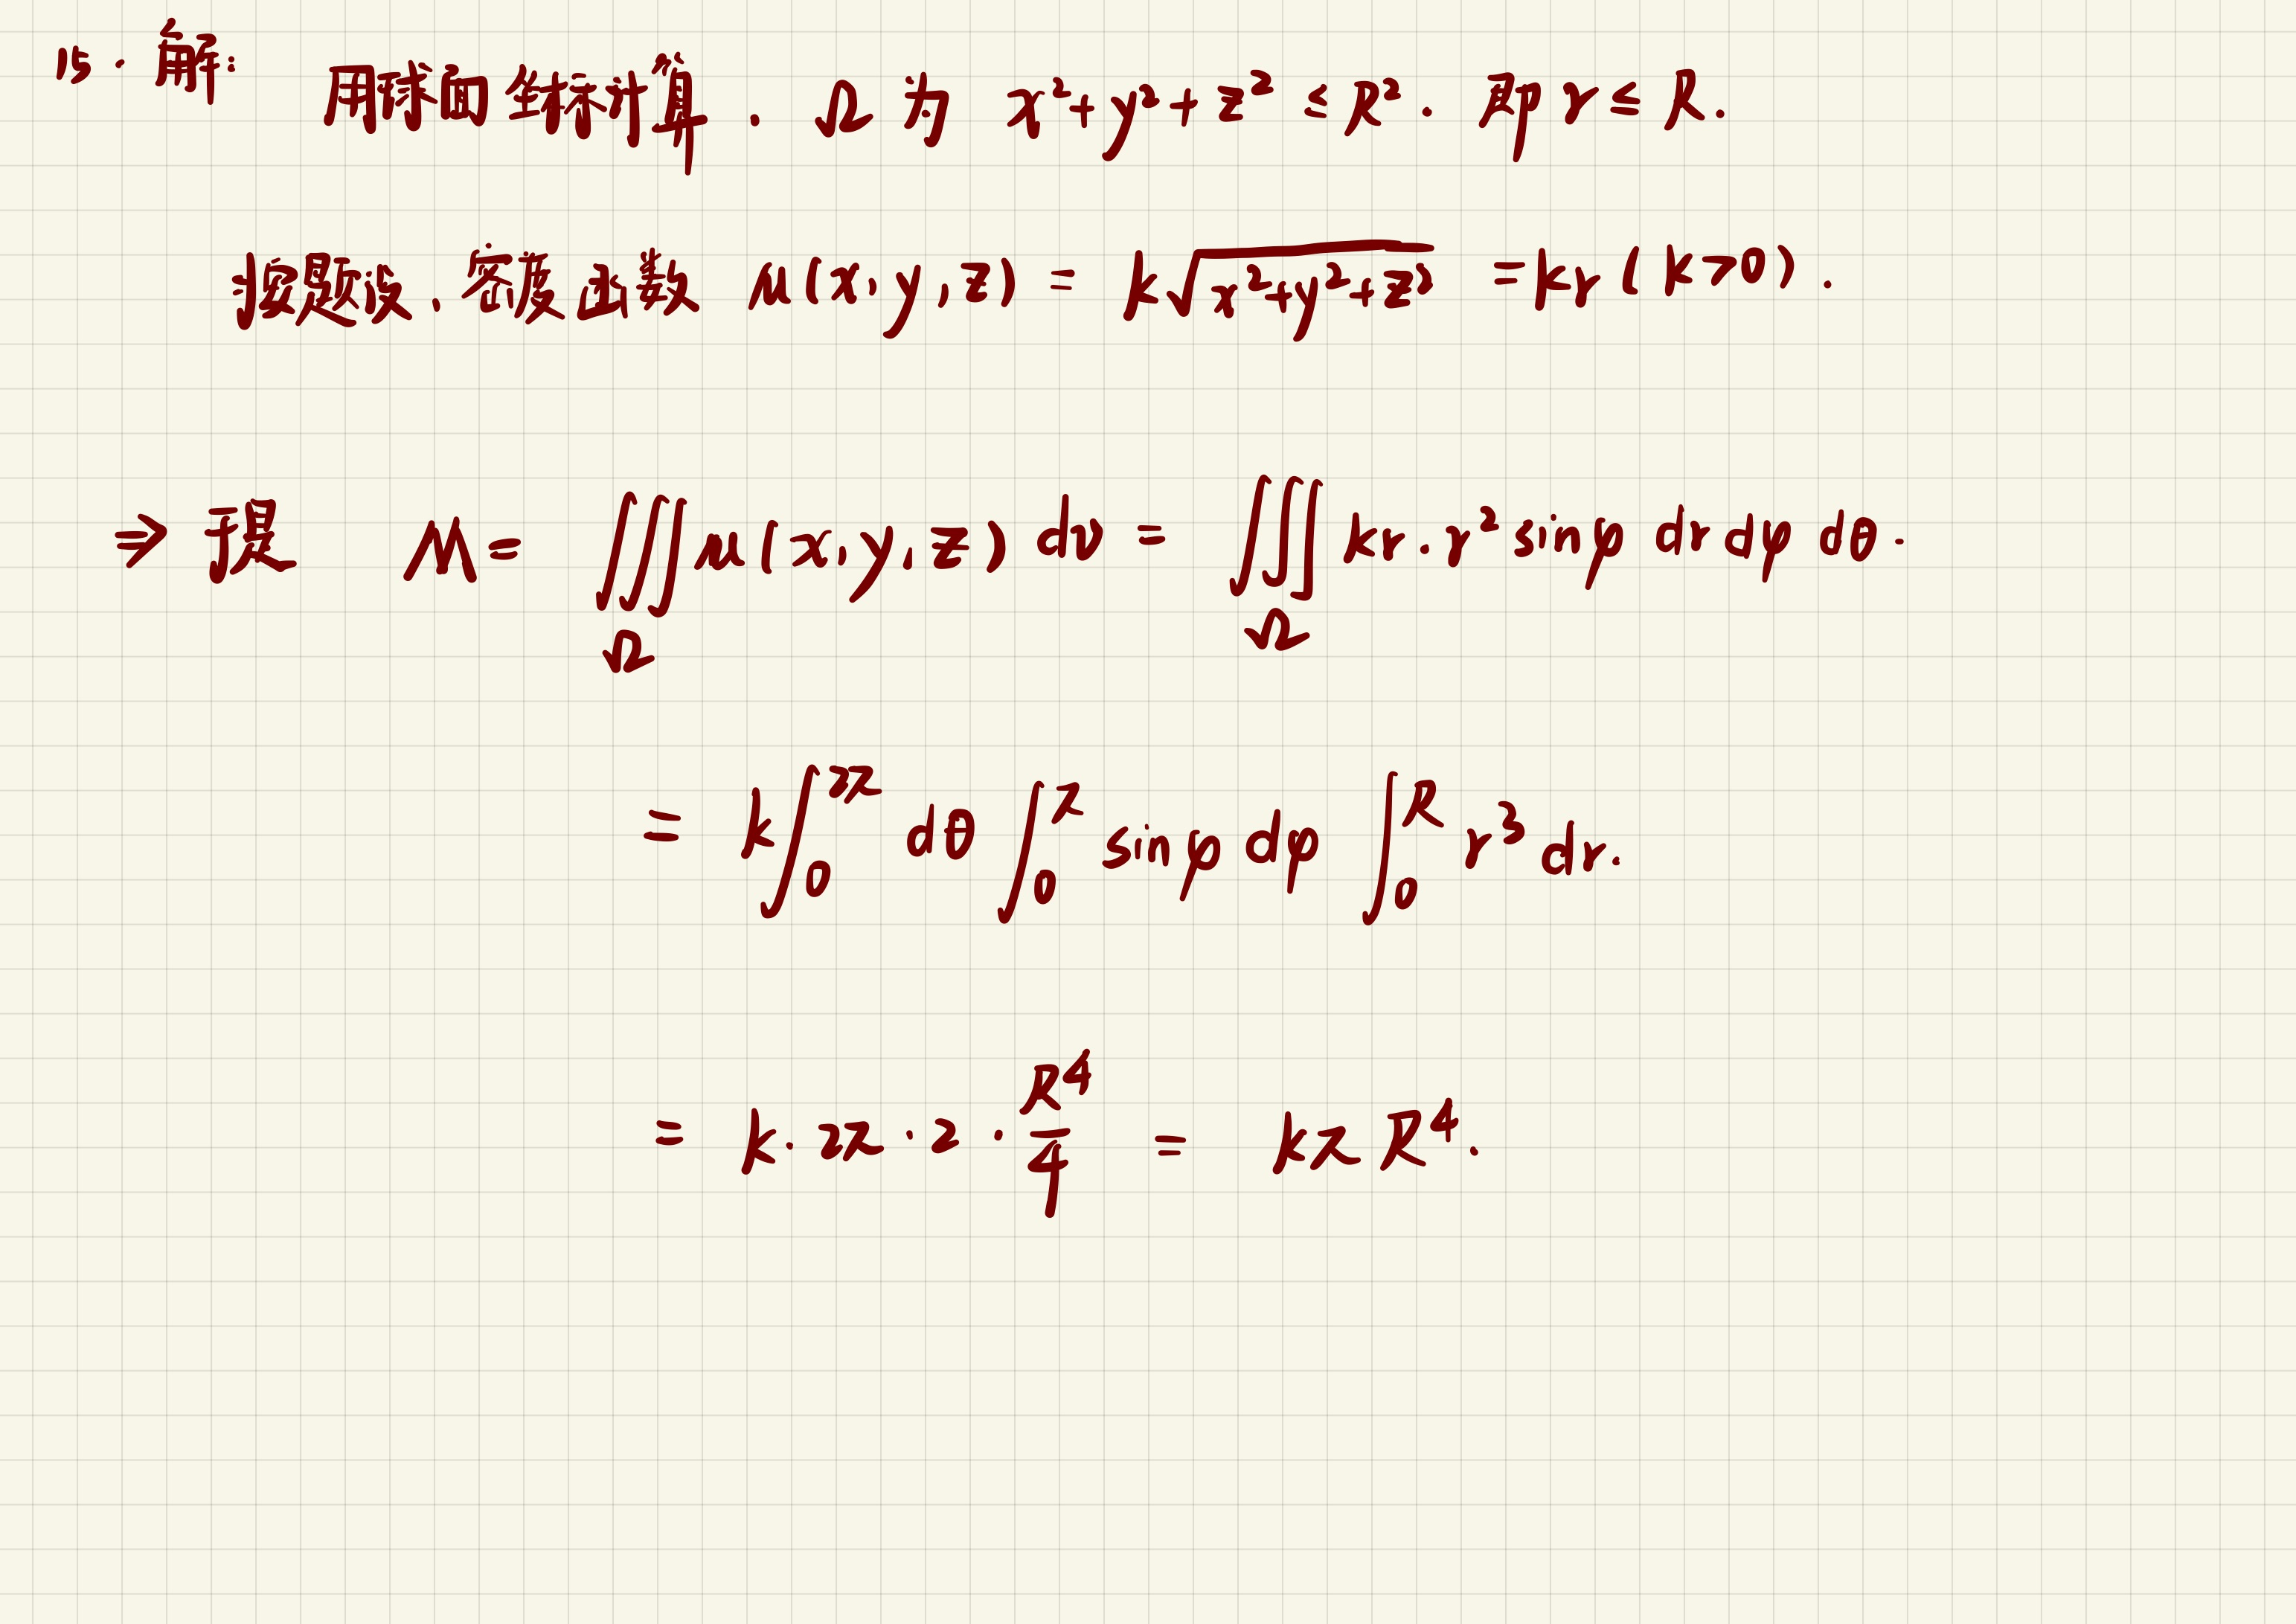 15. 解:
用球面坐标计算. Ω 为 x²+y²+z² ≤ R². 即 r ≤ R.
按题设, 密度函数 μ(x, y, z) = k√(x²+y²+z²) = kr (k>0).
⇒ 质量 M = ∭_Ω μ(x, y, z) dv = ∭_Ω kr · r² sinφ dr dφ dθ.
= k∫₀^{2π} dθ ∫₀^{π} sinφ dφ ∫₀^{R} r³ dr.
= k · 2π · 2 · R⁴/4 = kπR⁴.